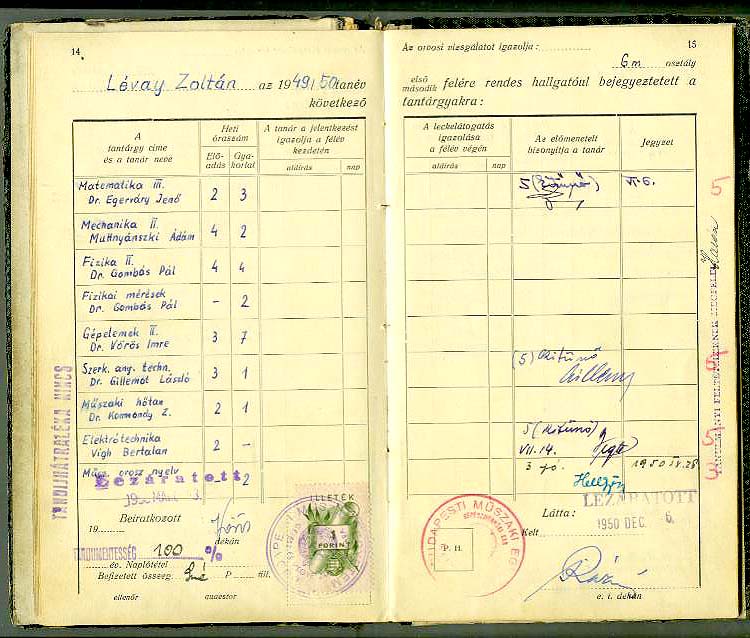 14
Lévay Zoltán az 1949/50 tanév
következő
A tantárgy címe és a tanár neve
Heti óraszám
Elő-adás
Gya-korlat
A tanár a jelentkezést igazolja a félév kezdetén
aláírás
nap
Matematika III.
Dr. Egerváry Jenő 2 3
Mechanika II.
Muttnyánszki Ádám 4 2
Fizika II.
Dr. Gombás Pál 4 4
Fizikai mérések
Dr. Gombás Pál - 2
Gépelemek II.
Dr. Vörös Imre 3 7
Szerk. ang. techn.
Dr. Gillemot László 3 1
Műszaki hőtan
Dr. Kormondy Z. 2 1
Elektrótechnika
Vigh Bertalan 2 -
Műsz. orosz nyelv 2
Lezáratott
TANDIJHÁTRALÉKA NINCS
Beiratkozott
19
dékán
TANDIJMENTESSÉG 100 %
év. Naplótétel
Befizetett összeg: P fill.
ellenőr quaestor
ILLETÉK
1
FORINT
15
Az orvosi vizsgálatot igazolja:
6m osztály
első
második felére rendes hallgatóul bejegyeztetett a
tantárgyakra:
A leckelátogatás igazolása a félév végén
aláírás
nap
Az előmenetelt bizonyítja a tanár
Jegyzet
5 VI. 6.
5
(5) Kitűnő
5 (kitűnő)
VII. 14.
3 jó. 1950 IX. 28
LEZÁRATOTT
1950 DEC. 6.
Látta:
Kelt
BUDAPESTI MŰSZAKI EG
P. H.
e. i. dékán